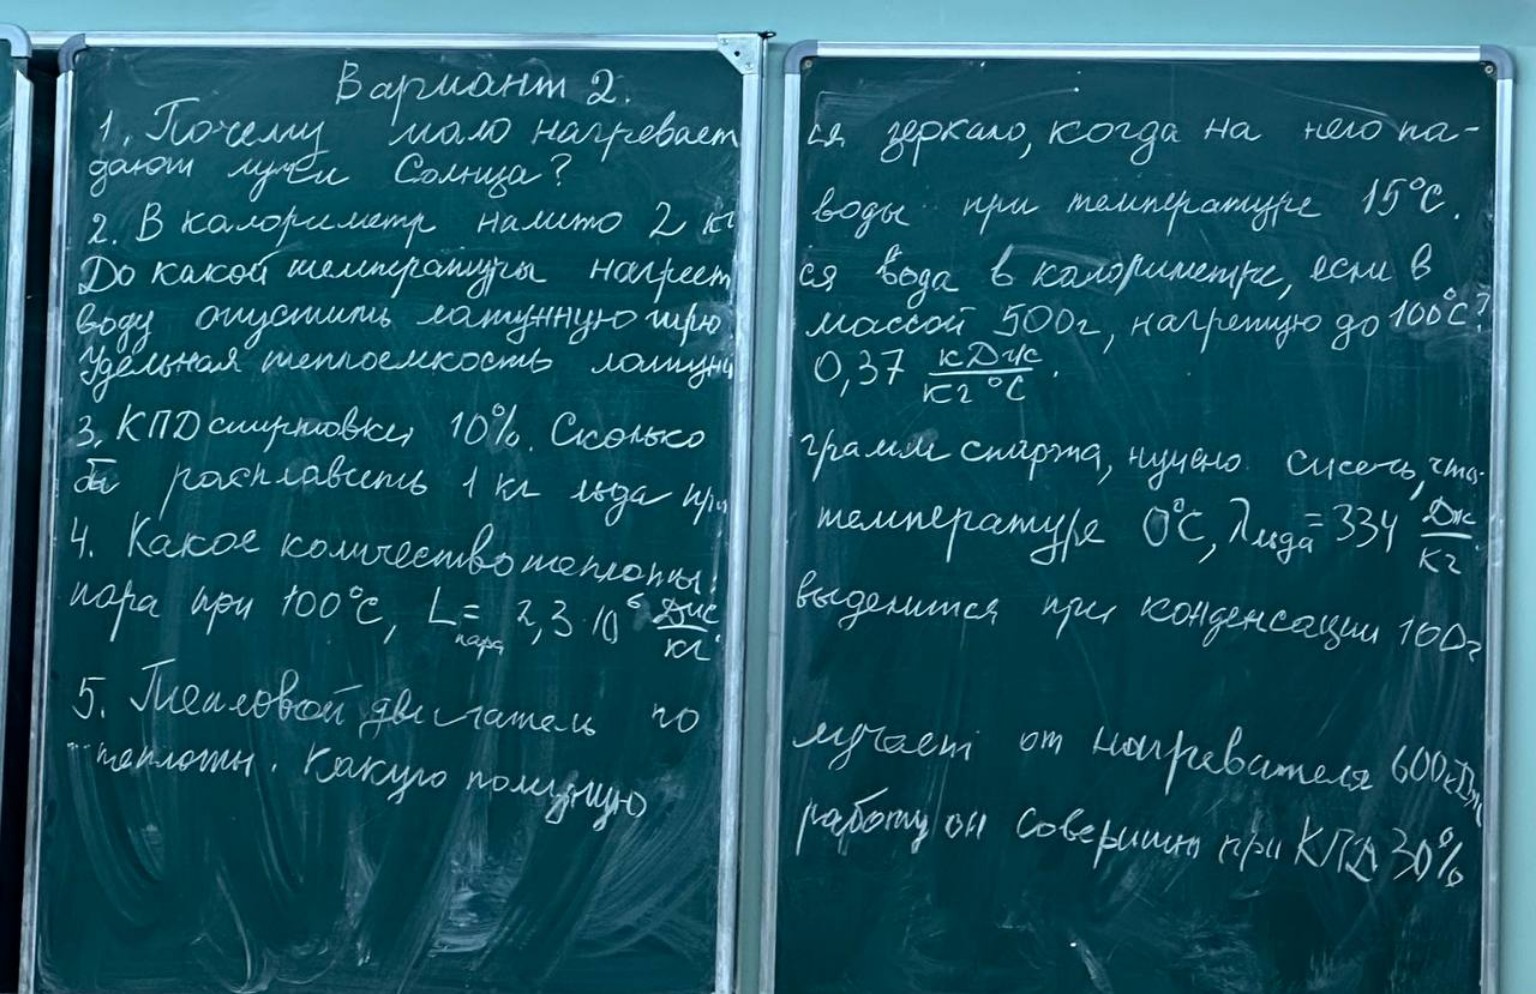 Вариант 2.
1. Почему мало нагревает
ся зеркало, когда на него па-
дают лучи Солнца?
2. В калориметр налито 2 кг
воды при температуре 15°С.
До какой температуры нагреет
ся вода в калориметре, если в
воду опустить латунную гирю
массой 500г, нагретую до 100°С?
Удельная теплоемкость латуни
0,37 кДж/кг °С.
3. КПД спиртовки 10%. Сколько
грамм спирта, нужно сжечь, что-
бы расплавить 1 кг льда при
температуре 0°С, λльда = 334 Дж/кг
4. Какое количество теплоты
выделится при конденсации 100г
пара при 100°С, Lпара = 2,3·10⁶ Дж/кг.
5. Тепловой двигатель по
лучает от нагревателя 600кДж
теплоты. Какую полезную
работу он совершит при КПД 30%